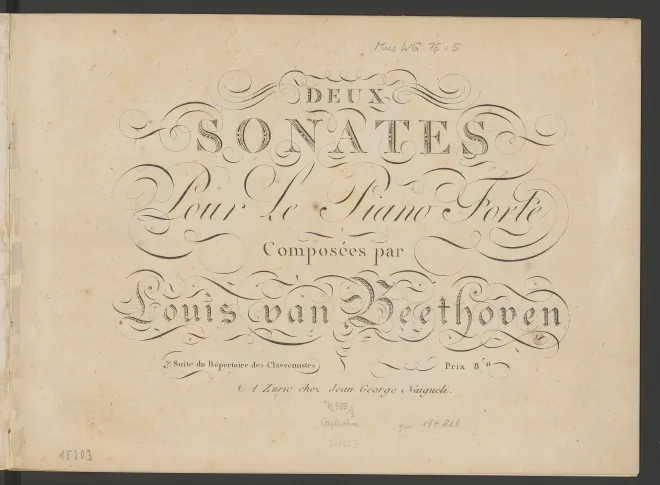 Mus WG 76:5
DEUX
SONATES
Pour Le Piano Forte
Composées par
Louis van Beethoven
Suite du Répertoire des Clavecinistes
Prix 8
A Zuric chez Jean George Naigueli.
15303